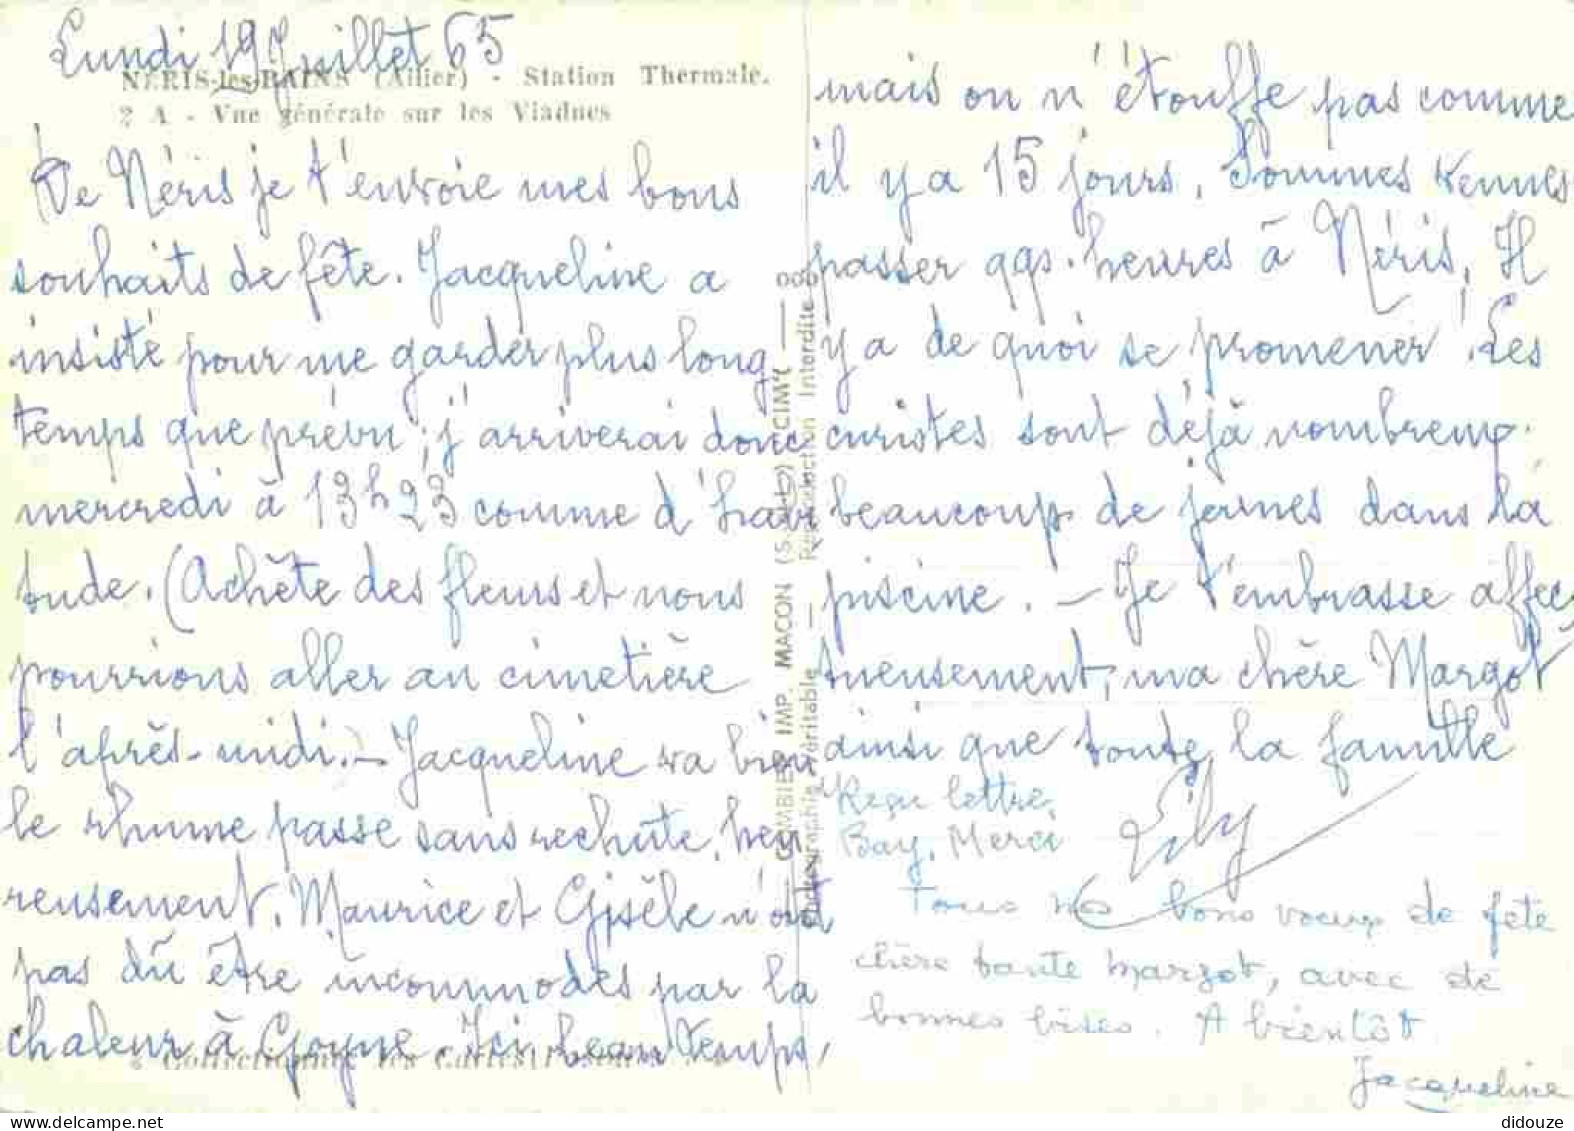 Lundi 19 Juillet 65
NÉRIS-les-BAINS (Allier) - Station Thermale.
2 A - Vue générale sur les Viaducs
De Néris je t'envoie mes bons
souhaits de fête. Jacqueline a
insisté pour me garder plus long
temps que prévu ; j'arriverai donc
mercredi à 13h23 comme d'habi
tude. (Achète des fleurs et nous
pourrions aller au cimetière
l'après-midi.) - Jacqueline va bien
le rhume passe sans rechute, heu
reusement. Maurice et Gisèle n'ont
pas dû être incommodés par la
chaleur à Goyne. Ici beau temps,
mais on n'étouffe pas comme
il y a 15 jours. Sommes venues
passer qqs. heures à Néris. Il
y a de quoi se promener ! Les
curistes sont déjà nombreux.
beaucoup de jeunes dans la
piscine. - Je t'embrasse affec
tueusement, ma chère Margot
ainsi que toute la famille
Lily
Reçu lettre,
Bay. Merci
Tous nos bons voeux de fête
chère tante Margot, avec de
bonnes bises. A bientôt
Jacqueline
COMBIER IMP. MACON (S.-&-L.) "CIM"
Photographie Véritable — Reproduction Interdite
Collectionnez les Cartes
didouze